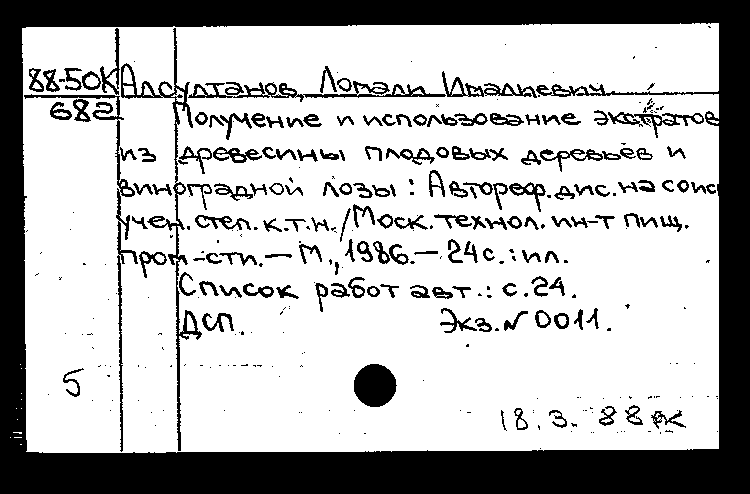 88-50К Алсултанов, Ломали Имальевич.
682 Получение и использование экстратов
из древесины плодовых деревьев и
виноградной лозы : Автореф. дис. на соис
учен. степ. к.т.н. / Моск. технол. ин-т пищ.
пром-сти. — М., 1986. — 24 с. : ил.
Список работ авт. : с. 24.
ДСП. Экз. N 0011.
5
18. 3. 88